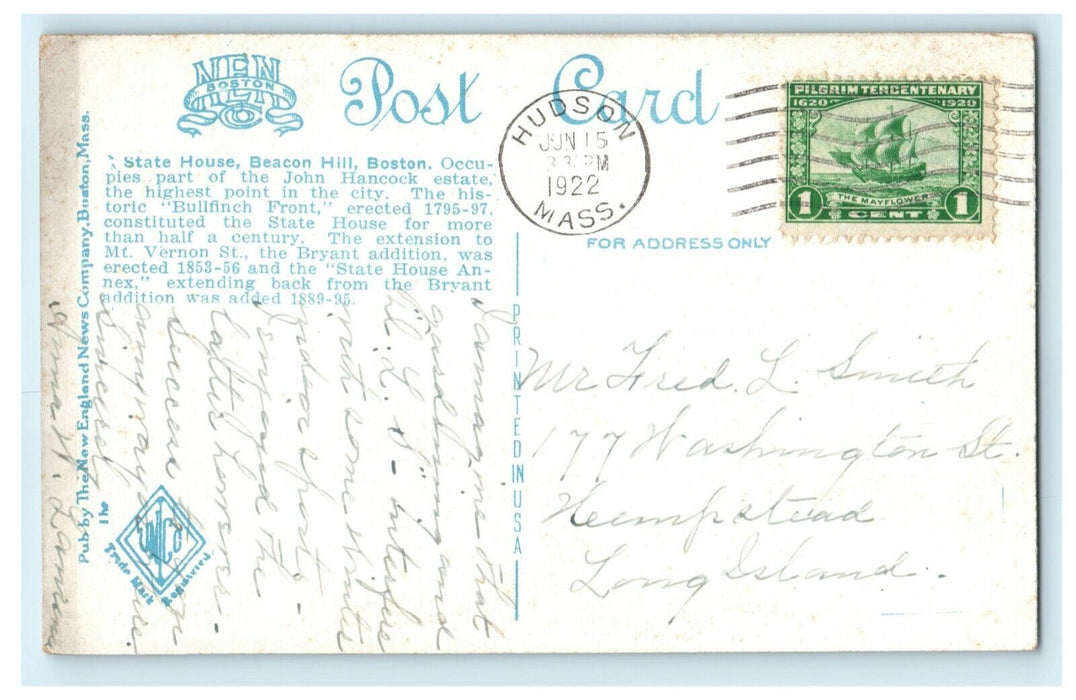 NEN
BOSTON
CO
Post Card
HUDSON
JUN 15
PM
1922
MASS.
PILGRIM TERCENTENARY
1620 1920
THE MAYFLOWER
1 CENT 1
State House, Beacon Hill, Boston. Occu-
pies part of the John Hancock estate,
the highest point in the city. The his-
toric "Bullfinch Front," erected 1795-97,
constituted the State House for more
than half a century. The extension to
Mt. Vernon St., the Bryant addition, was
erected 1853-56 and the "State House An-
nex," extending back from the Bryant
addition was added 1889-95.
FOR ADDRESS ONLY
Pub. by The New England News Company, Boston, Mass.
PRINTED IN USA
The
Trade Mark Registered
I imagine that
gardening and
H. L. S. - interfere
with some Winter
indoor sports -
I enjoyed the
latter however.
Success
anyway
Sincerely
Anna
Mr Fred. L. Smith
177 Washington St.
Heempstead
Long Island.